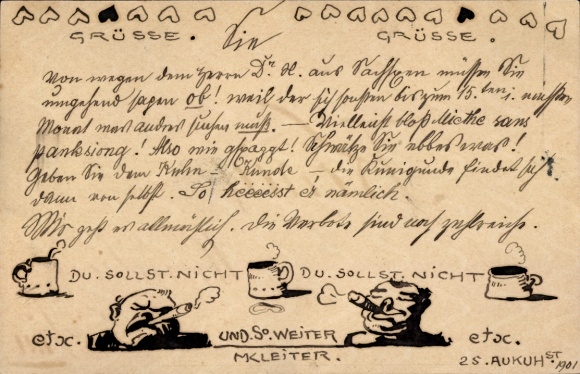 GRÜSSE. Sie GRÜSSE.
Von wegen dem Herrn Dr. H. aus Sachsen müssen Sie
umgehend sagen ob! weil der sich sonst bis zum 15. ten
Monat was andres suchen muß. — Vielleicht bloß Miethe sans
panksiong! Also wie gsaggt! Schwatze Sie ebbes was!
Geben Sie dem Kuhn - Kunde - die Kunigunde findet sich
dann von selbst. So heeeesst es nämlich.
Wo geht es allmählich. Die Verbote sind noch zahlreiche.
DU. SOLLST. NICHT DU. SOLLST. NICHT
etx. UND. So. WEITER etx.
MKLEITER.
25. AUKUHST. 1901